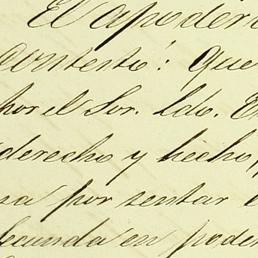 El apoder
contestó: Que
por el Sor. Ldo. E
derecho y hecho,
na por sentar e
secunda en poder